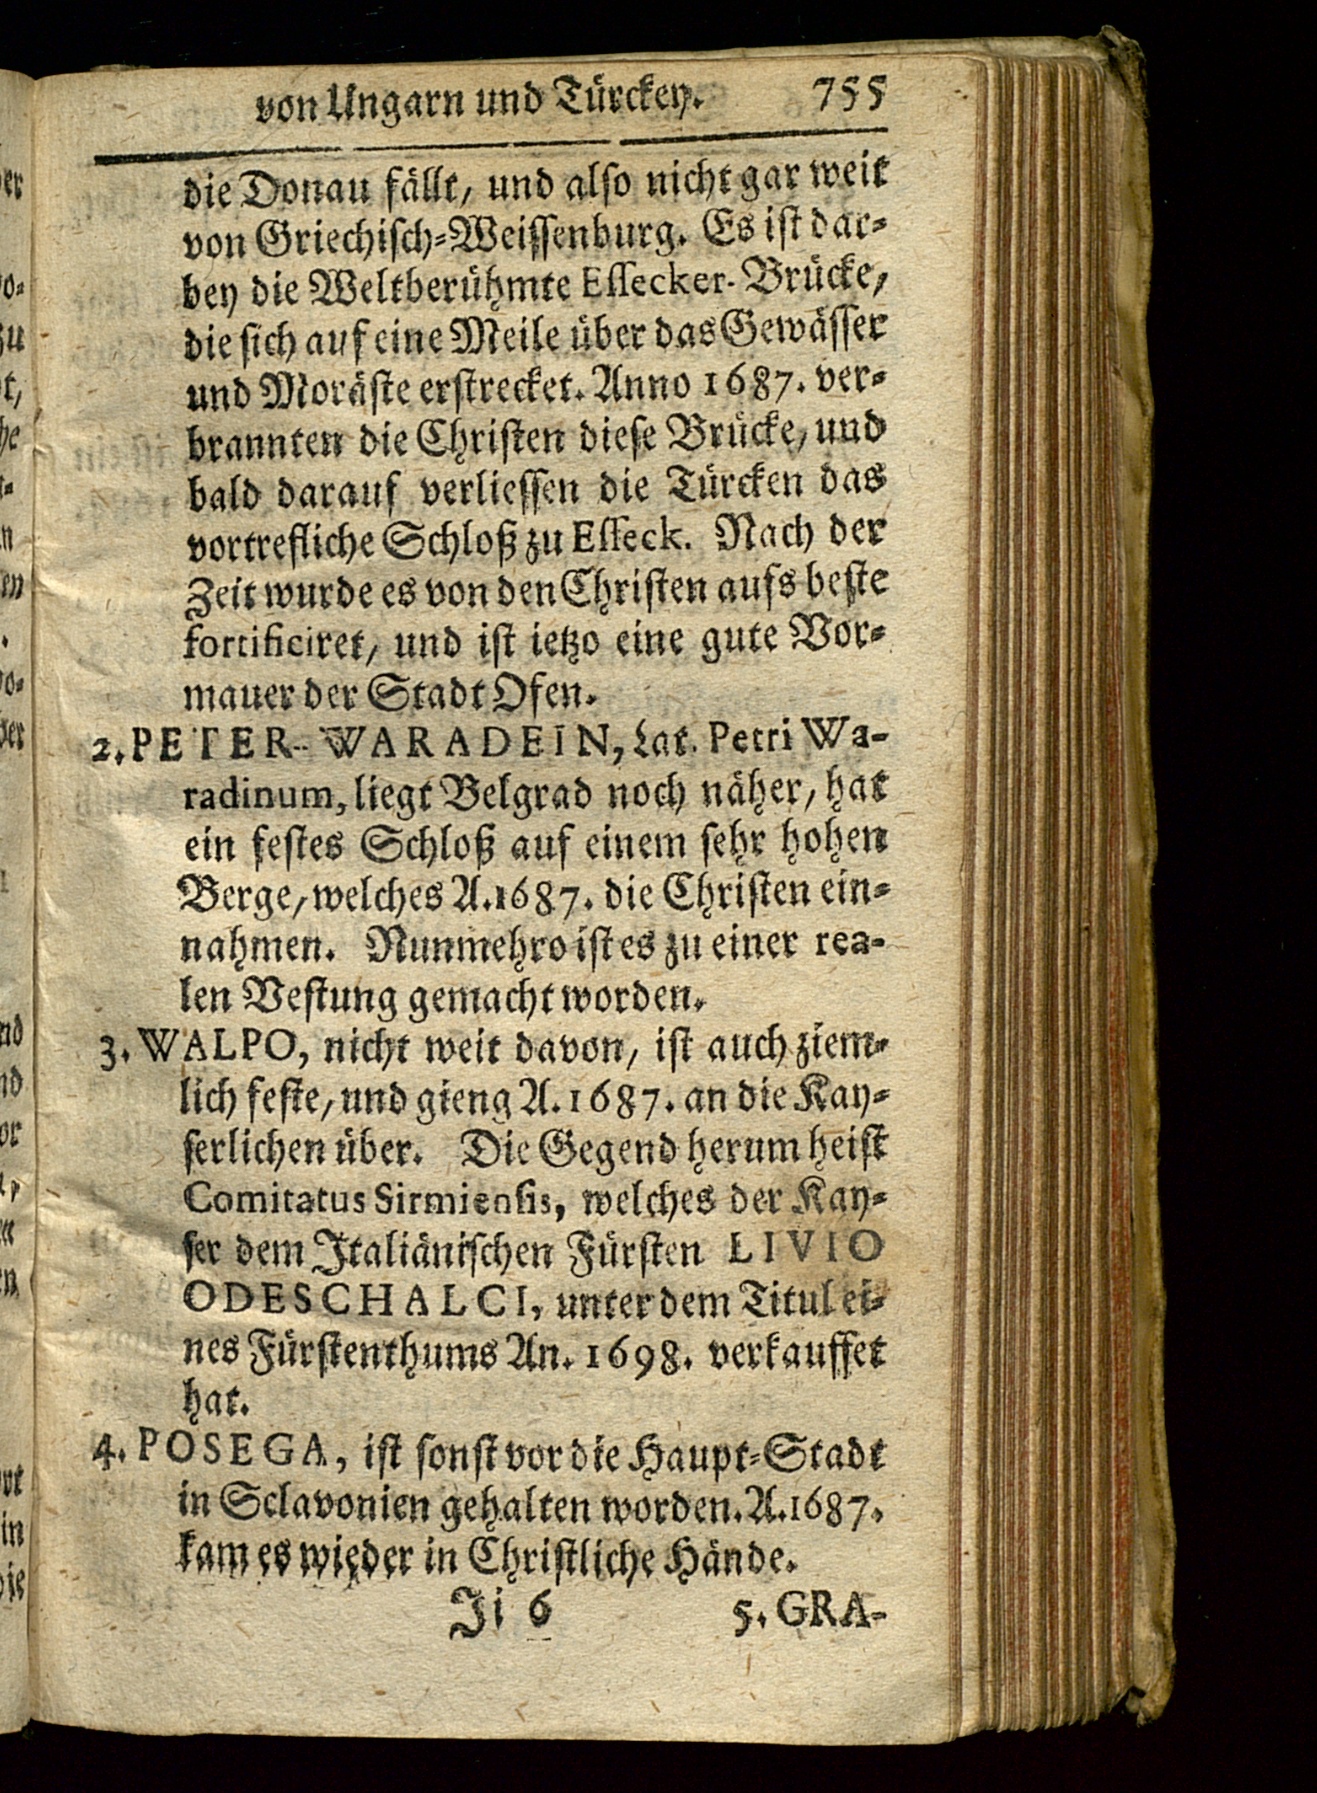 von Ungarn und Türckey. 755
die Donau fällt, und also nicht gar weit
von Griechisch-Weissenburg. Es ist dar-
bey die Weltberühmte Essecker-Brücke,
die sich auf eine Meile über das Gewässer
und Moräste erstrecket. Anno 1687. ver-
brannten die Christen diese Brücke, und
bald darauf verliessen die Türcken das
vortrefliche Schloß zu Esseck. Nach der
Zeit wurde es von den Christen aufs beste
fortificiret, und ist ietzo eine gute Vor-
mauer der Stadt Ofen.
2. PETER-WARADEIN, Lat. Petri Wa-
radinum, liegt Belgrad noch näher, hat
ein festes Schloß auf einem sehr hohen
Berge, welches A. 1687. die Christen ein-
nahmen. Nunmehro ist es zu einer rea-
len Vestung gemacht worden.
3. WALPO, nicht weit davon, ist auch ziem-
lich feste, und gieng A. 1687. an die Kay-
serlichen über. Die Gegend herum heist
Comitatus Sirmiensis, welches der Kay-
ser dem Italiänischen Fürsten LIVIO
ODESCHALCI, unter dem Titul ei-
nes Fürstenthums An. 1698. verkauffet
hat.
4. POSEGA, ist sonst vor die Haupt-Stadt
in Sclavonien gehalten worden. A. 1687.
kam es wieder in Christliche Hände.
Ji 6 5. GRA-